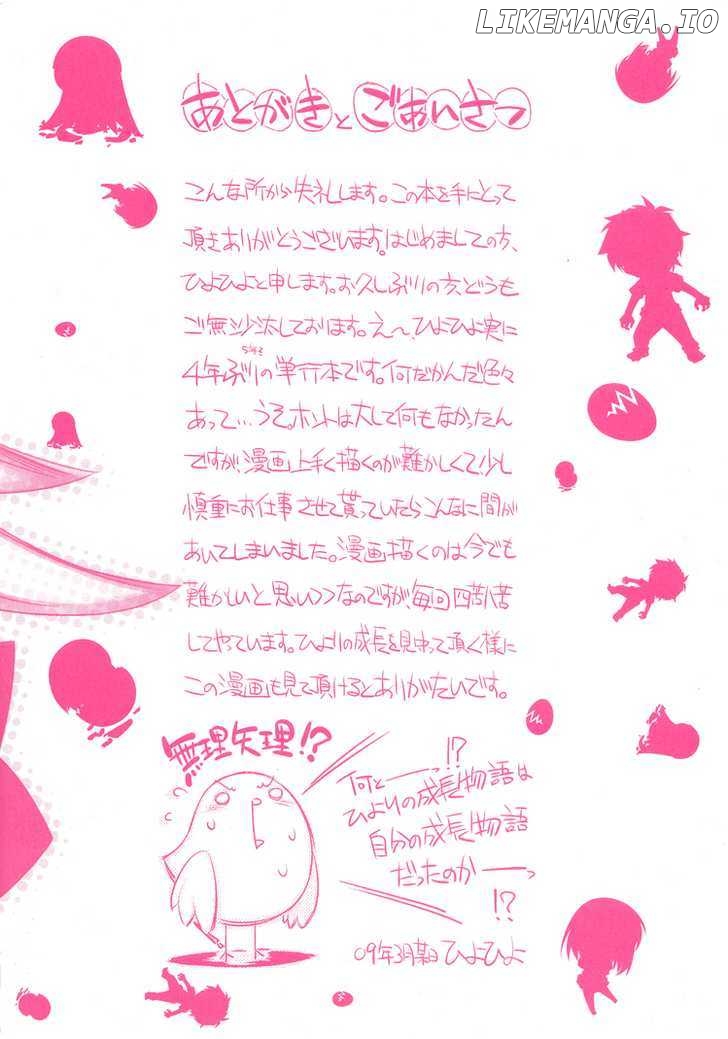 LIKEMANGA.IO
あとがきとごあいさつ
こんな所から失礼します。この本を手にとって
頂きありがとうございます。はじめましての方、
ひよひよと申します。お久しぶりの方、どうも
ご無沙汰しております。え〜、ひよひよ実に
4年ぶりの単行本です。何だかんだ色々
あって…うそ。ホントは大して何もなかったん
ですが、漫画上手く描くのが難かしくて、少し
慎重にお仕事させて貰っていたらこんなに間が
あいてしまいました。漫画描くのは今でも
難かしいと思いつつなのですが、毎回四苦八苦
してやっています。ひよりの成長を見守って頂く様に
この漫画も見て頂けるとありがたいです。
無理矢理!?
何とーーっ!?
ひよりの成長物語は
自分の成長物語
だったのかーーっ
!?
09年3月某日 ひよひよ